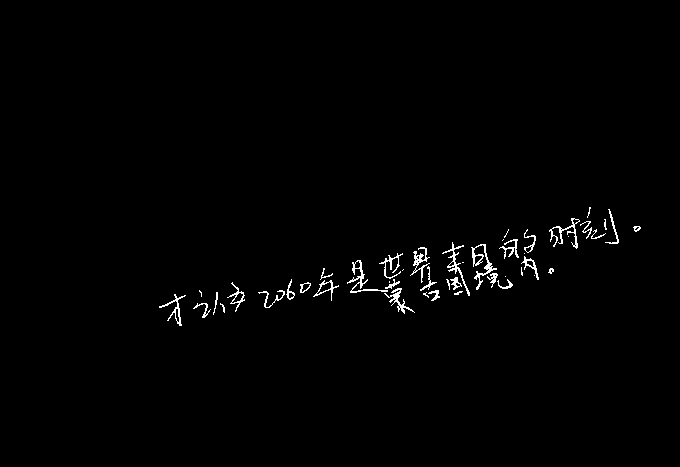 才认为2060年是世界末日的时刻。
蒙古国境内。